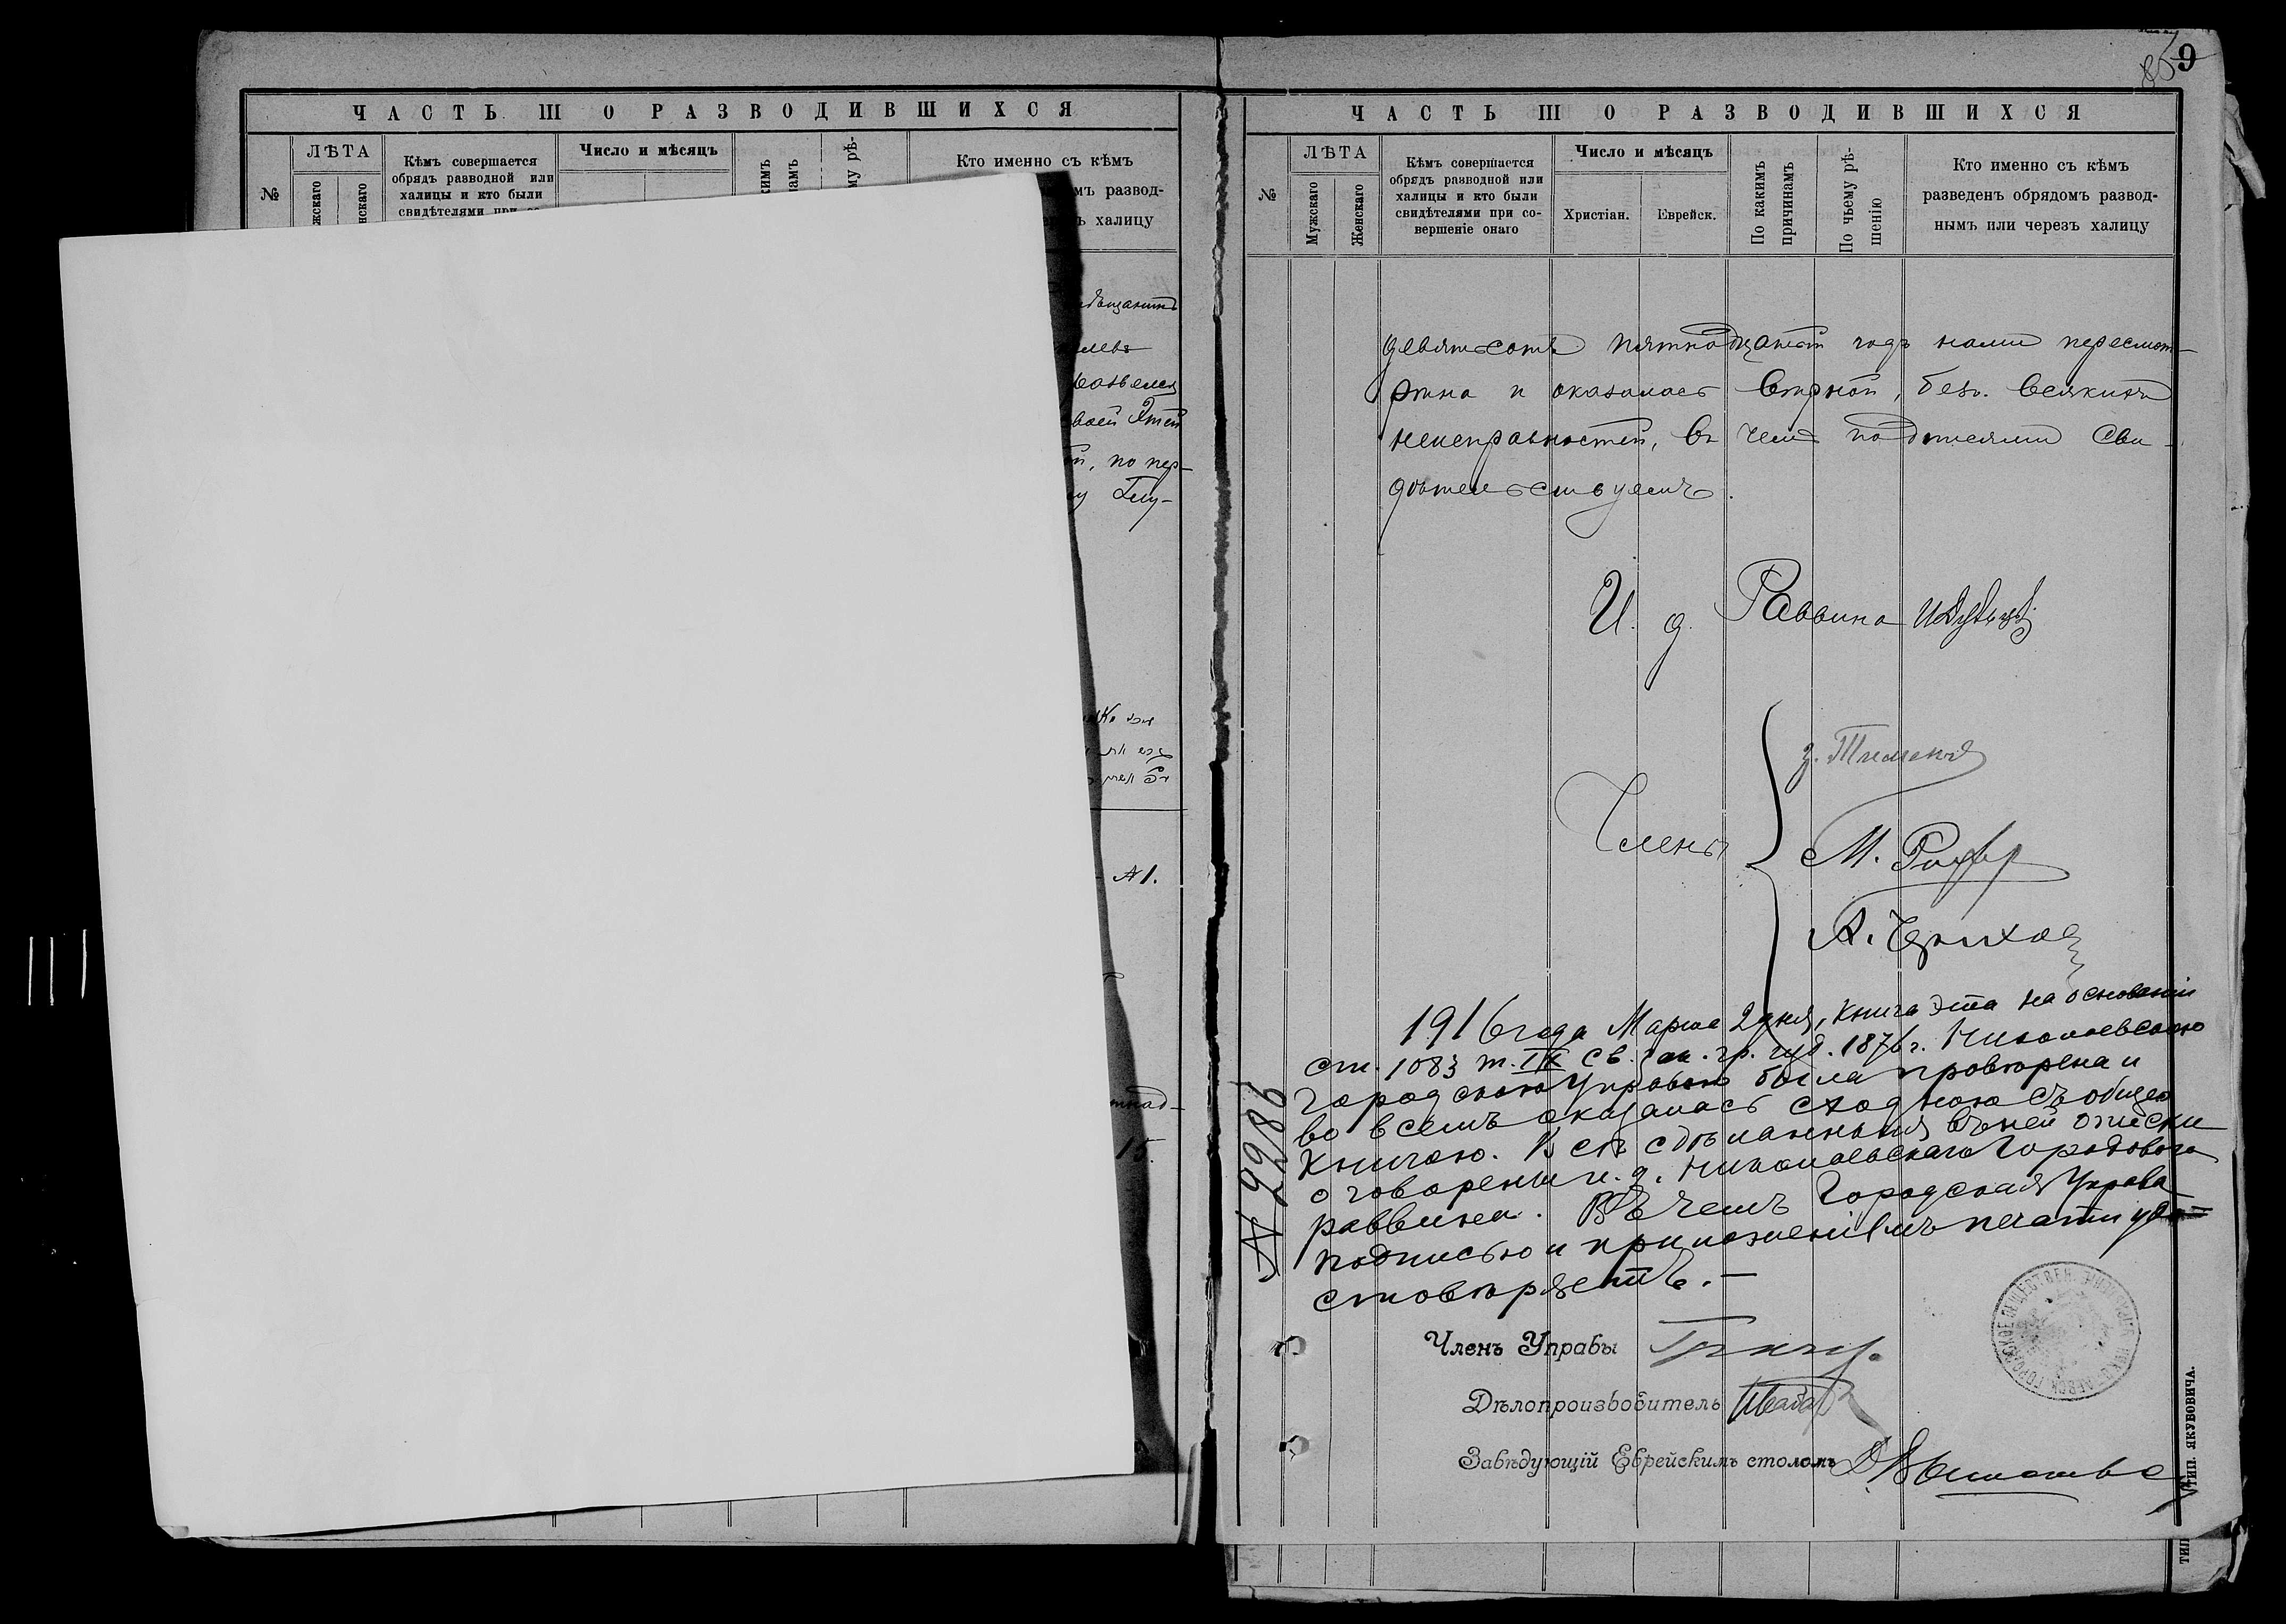 ЧАСТЬ III О РАЗВОДИВШИХСЯ
№
ЛѢТА
жскаго
нскаго
Кѣмъ совершается
обрядъ разводной или
халицы и кто были
свидѣтелями при со-
Число и мѣсяцъ
кимъ
намъ
му рѣ-
Кто именно съ кѣмъ
мъ развод-
ъ халицу
по пер-
№ 1.
15.
9
85
ЧАСТЬ III О РАЗВОДИВШИХСЯ
№
ЛѢТА
Мужскаго
Женскаго
Кѣмъ совершается
обрядъ разводной или
халицы и кто были
свидѣтелями при со-
вершеніе онаго
Число и мѣсяцъ
Христіан.
Еврейск.
По какимъ
причинамъ
По чьему рѣ-
шенію
Кто именно съ кѣмъ
разведенъ обрядомъ развод-
нымъ или черезъ халицу
девятьсотъ пятнадцатый годъ нами пересмот-
рѣна и оказалась вѣрной, безъ всякихъ
неисправностей, въ чемъ подписями сви-
дѣтельствуемъ.
И. д. Раввина
Члены
М.
А.
1916 года Марта 2 дня, книга эта на основаніи
ст. 1083 т. IX св. зак. гр. изд. 1876 г. Николаевскою
Городскою Управою была провѣрена и
во всемъ оказалась сходною съ общею
книгою. Всѣ сдѣланныя въ ней описки
оговорены и. д. Николаевскаго Городового
раввина. Въ чемъ Городская Управа
подписью и приложеніемъ печати удо=
стовѣряетъ.—
№ 2286
Членъ Управы
Дѣлопроизводитель
Завѣдующій Еврейскимъ столомъ
ТИП. ЯКУБОВИЧА.
ТИП